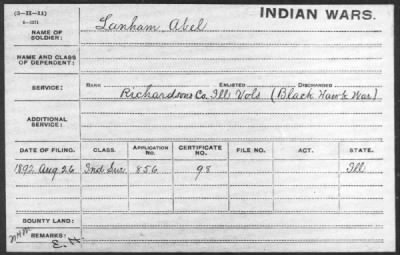 (3-II-21)
6-2271
INDIAN WARS.
NAME OF SOLDIER: Lanham, Abel
NAME AND CLASS OF DEPENDENT:
SERVICE: RANK ENLISTED DISCHARGED
Richardsons Co. Ill Vols (Black Hawk War)
ADDITIONAL SERVICE:
DATE OF FILING. CLASS. APPLICATION No. CERTIFICATE No. FILE NO. ACT. STATE.
1892 Aug 26 Ind Sur. 856 98 Ill
BOUNTY LAND:
REMARKS: E. H.